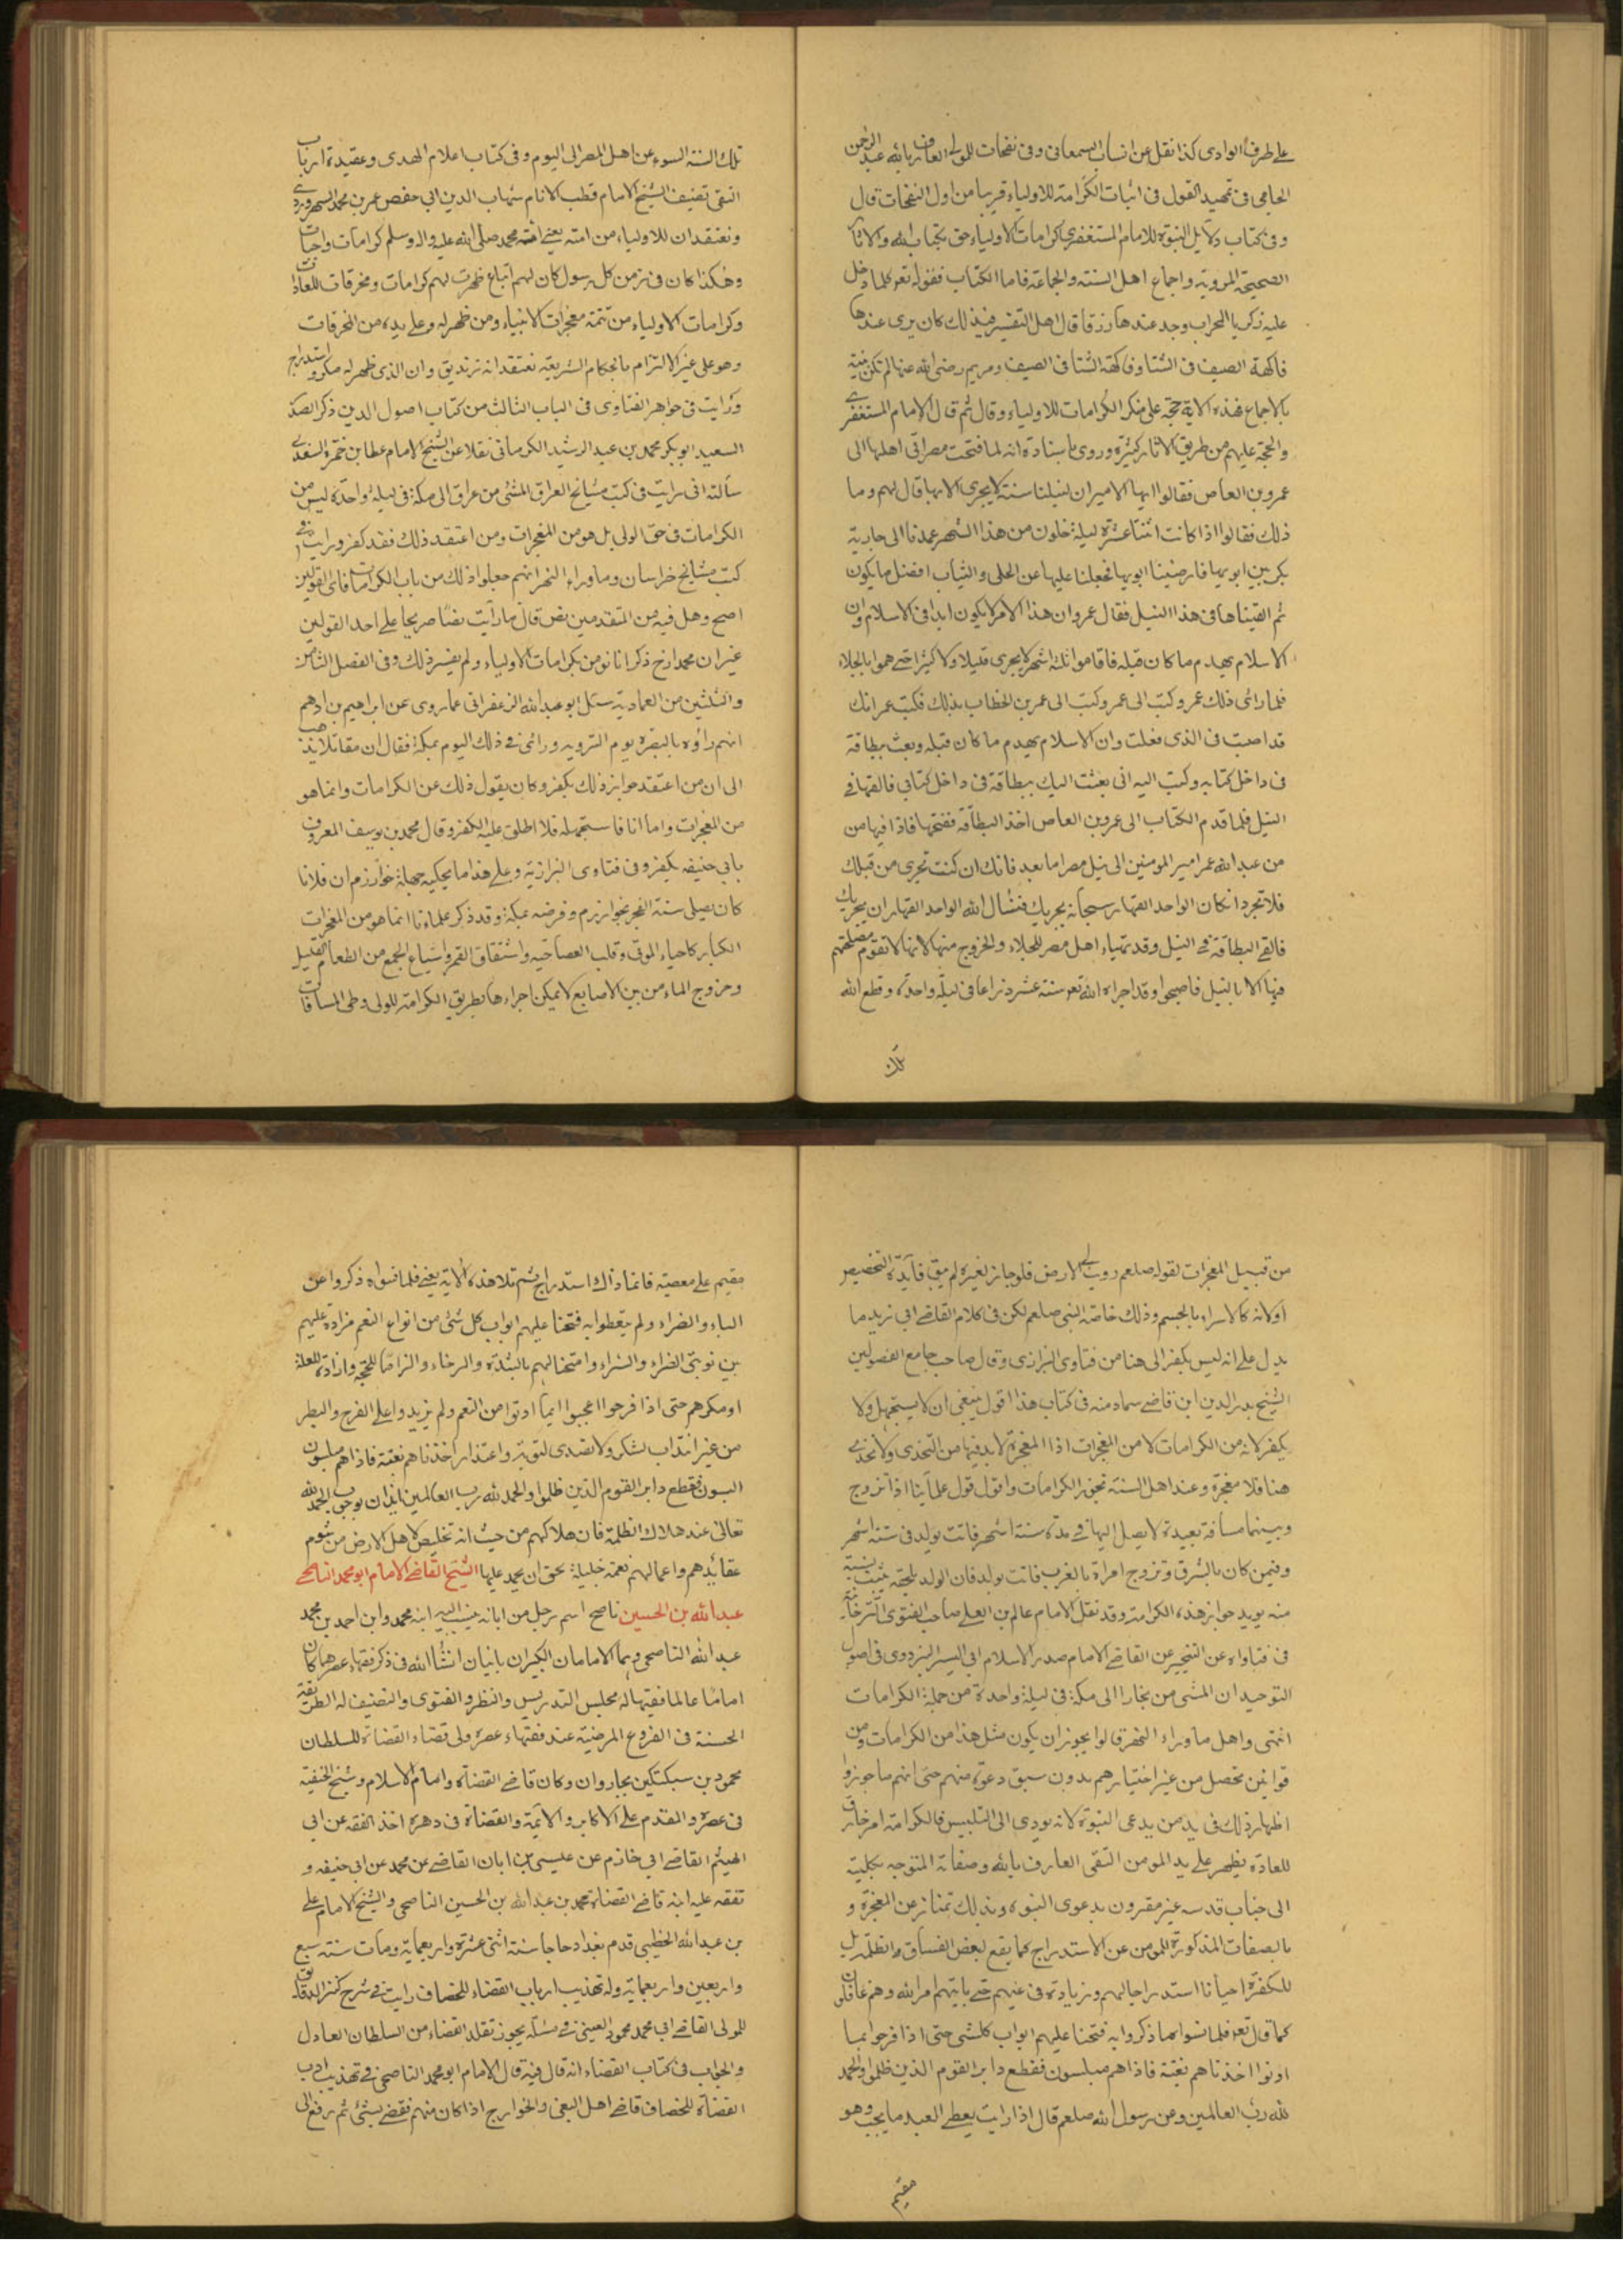 على طرف الوادى كذا نقل عن انساب السمعانى وفى نفحات للمولى العارف بالله عبد الرحمن
الجامى فى تمهيد القول فى اثبات الكرامة للاولياء قريبا من اول النفحات قال
وفى كتاب دلايل النبوة للامام المستغفرى كرامات الاولياء حق بكتاب الله والاثار
الصحيحة المروية واجماع اهل السنة والجماعة فاما الكتاب فقوله تعو كلما دخل
عليه زكريا المحراب وجد عندها رزقا قال اهل التفسير فى ذلك كان يرى عندها
فاكهة الصيف فى الشتا وفاكهة الشتا فى الصيف ومريم رضى الله عنها لم تكن نبية
بالاجماع فهذه الاية حجة على منكر الكرامات للاولياء وقال ثم قال الامام المستغفرى
والحجة عليهم من طريق الاثار كثيرة وروى باسناده انه لما فتحت مصر اتى اهلها الى
عمرو بن العاص فقالوا ايها الامير ان لنيلنا سنة لا يجرى الا بها قال لهم وما
ذلك فقالوا اذا كانت اثنتا عشرة ليلة خلون من هذا الشهر عمدنا الى جارية
بكر بين ابويها فارضينا ابويها فجعلنا عليها عن الحلى والثياب افضل ما يكون
ثم القيناها فى هذا النيل فقال عمرو ان هذا الامر لا يكون ابدا فى الاسلام وان
الاسلام يهدم ما كان قبله فاقاموا ثلثة اشهر لا يجرى قليلا ولا كثيرا حتى هموا بالجلاء
فلما رائ ذلك عمرو كتب الى عمر وكتب الى عمر بن الخطاب بذلك فكتب عمر انك
قد اصبت فى الذى فعلت وان الاسلام يهدم ما كان قبله وبعث ببطاقة
فى داخل كتابه وكتب اليه انى بعثت اليك ببطاقة فى داخل كتابى فالقها فى
النيل فلما قدم الكتاب الى عمرو بن العاص اخذ البطاقة ففتحها فاذا فيها من
من عبد الله عمر امير المومنين الى نيل مصر اما بعد فانك ان كنت تجرى من قبلك
فلا تجر وان كان الواحد القهار سبحانه يجريك فنسال الله الواحد القهار ان يجريك
فالقى البطاقة فى النيل وقد تهياء اهل مصر للجلاء والخروج منها لانها لا تقوم مصلحتهم
فيها الا بالنيل فاصبحوا وقد اجراه الله تعو ستة عشر ذراعا فى ليلة واحدة وقطع الله
تلك
تلك السنة السوء عن اهل المصر الى اليوم وفى كتاب اعلام الهدى وعقيدة ارباب
التقى تصنيف الشيخ الامام قطب الانام شهاب الدين ابى حفص عمر بن محمد السهروردى
ونعتقد ان للاولياء من امته يعنى امة محمد صلى الله عليه واله وسلم كرامات واجابات
وهكذا كان فى زمن كل رسول كان لهم اتباع ظهرت لهم كرامات ومخرقات للعادات
وكرامات الاولياء من تتمة معجزات الانبياء ومن ظهر له وعلى يده من المخرقات
وهو على غير الالتزام باحكام الشريعة نعتقد انه زنديق وان الذى ظهر له مكر واستدراج
ورايت فى جواهر الفتاوى فى الباب الثالث من كتاب اصول الدين ذكر الصدر
السعيد ابو بكر محمد بن عبد الرشيد الكرمانى نقلا عن الشيخ الامام عطا بن حمزة السغدى
سالته انى رايت فى كتب مشايخ العراق المشى من عراق الى مكة فى ليلة واحدة ليس من
الكرامات فى حق الولى بل هو من المعجزات ومن اعتقد ذلك فقد كفر ورايت فى
كتب مشايخ خراسان وما وراء النهر انهم جعلوا ذلك من باب الكرامات فاى القولين
اصح وهل فيه من المتقدمين نص قال ما رايت نصا صريحا على احد القولين
غير ان محمدا رح ذكر انا نومن بكرامات الاولياء ولم يفسر ذلك وفى الفصل الثامن
والثلثين من العمادية سئل ابو عبد الله الزعفرانى عما روى عن ابراهيم بن ادهم
انهم راوه بالبصرة يوم التروية ورائ فى ذلك اليوم بمكة فقال ان مقاتلا يذهب
الى ان من اعتقد جواز ذلك يكفر وكان يقول ذلك عن الكرامات وانما هو
من المعجزات واما انا فاستجهله فلا اطلق عليه الكفر وقال محمد بن يوسف المعروف
بابى حنيفه يكفر وفى فتاوى البزازية وعلى هذا ما يحكيه جهلة خوارزم ان فلانا
كان يصلى سنة الفجر بخوارزم وفرضه بمكة وقد ذكر علماونا انما هو من المعجزات
الكبار كاحياء الموتى وقلب العصا حية وانشقاق القمر واشباع الجمع من الطعام القليل
وخروج الماء من بين الاصابع لا يمكن اجراءها بطريق الكرامة للولى وطى المسافات
من قبيل المعجزات لقوله صلعم زويت لى الارض فلو جاز لغيره لم يبق فايدة التخصيص
اولانه كالاسراء بالجسم وذلك خاصة النبى صلعم لكن فى كلام القاضى ابى زيد ما
يدل على انه ليس بكفر الى هنا من فتاوى البزازى وقال صاحب جامع الفصولين
الشيخ بدر الدين ابن قاضى سماونه فى كتاب هذا اقول ينبغى ان لا يستجهل ولا
يكفر لانه من الكرامات لا من المعجزات اذا المعجزة لابد فيها من التحدى ولا تحدى
هنا فلا معجزة وعند اهل السنة تجوز الكرامات واقول قول علماينا اذا تزوج
وبينهما مسافة بعيدة لا يصل اليها فى مدة ستة اشهر فاتت بولد فى ستة اشهر
وفيمن كان بالشرق وتزوج امراة بالغرب فاتت بولد فان الولد يلحقه يثبت نسبته
منه يويد جواز هذه الكرامة وقد نقل الامام عالم بن العلى صاحب الفتوى التترخانية
فى فتاواه عن القاضى الامام صدر الاسلام ابى اليسر البزدوى فى اصول
التوحيد ان المشى من بخارا الى مكة فى ليلة واحدة من جملة الكرامات
انتهى واهل ما وراء النهر قالوا يجوز ان يكون مثل هذا من الكرامات ومن
قوانين تحصل من غير اختيارهم بدون سبق دعوة منهم حتى انهم ما جوزوا
اظهار ذلك فى يد من يدعى النبوة لانه يودى الى التلبيس فالكرامة امر خارق
للعادة يظهر على يد المومن التقى العارف بالله وصفاته المتوجه بكليته
الى جناب قدسه غير مقرون بدعوى النبوة وبذلك تمتاز عن المعجزة و
بالصفات المذكورة للمومن عن الاستدراج كما يقع لبعض الفساق والظلمة بل
للكفرة احيانا استدراجا لهم وزيادة فى غيهم حتى ياتيهم امر الله وهم غافلون
كما قال تعو فلما نسوا ما ذكروا به فتحنا عليهم ابواب كلشى حتى اذا فرحوا بما
اوتوا اخذناهم بغتة فاذا هم مبلسون فقطع دابر القوم الذين ظلموا والحمد
لله رب العالمين وعن رسول الله صلعم قال اذا رايت يعطى العبد ما يحب وهو
مقيم
مقيم على معصيته فانما ذاك استدراج ثم تلا هذه الاية يعنى فلما نسوا ما ذكروا عن
الباء والضراء ولم يتعظوا به فتحنا عليهم ابواب كل شئ من انواع النعم مزادة عليهم
بين نوبتى الضراء والسراء وامتحانا لهم بالشدة والرخاء والزاما للحجة وازادة للعلة
او مكرهم حتى اذا فرحوا اعجبوا بما اوتوا من النعم ولم يزيدوا على الفرح والبطر
من غير انتداب لشكر ولا تصدى لتوبة واعتذار اخذناهم بغتة فاذا هم مبلسون
البسون فقطع دابر القوم الذين ظلموا والحمد لله رب العالمين ايذان بوجوب الحمد لله
تعالى عند هلاك الظلمة فان هلاكهم من حيث انه تخليص لاهل الارض من شوم
عقائدهم واعمالهم نعمة جليلة يحق ان يحمد عليها الشيخ القاضى الامام ابو محمد الناصحى
عبد الله بن الحسين ناصح اسم رجل من ابائه ينسب اليه ابنه محمد وابن احمد بن محمد
عبد الله الناصحى وهما الامامان الكبيران ياتيان انشا الله فى ذكر فقهاء عصرهما كان
اماما عالما فقيها له مجلس التدريس والنظر والفتوى والتصنيف له الطريقة
الحسنة فى الفروع المرضية عند فقهاء عصره ولى قضاء القضاة للسلطان
محمود بن سبكتكين بخاروان وكان قاضى القضاة وامام الاسلام وشيخ الحنفية
فى عصره والمقدم على الاكابر والائمة والقضاة فى دهره اخذ الفقه عن ابى
الهيثم القاضى ابى خازم عن عيسى بن ابان القاضى عن محمد عن ابى حنيفه و
تفقه عليه ابنه قاضى القضاة محمد بن عبد الله بن الحسين الناصحى والشيخ الامام على
بن عبد الله الخطيبى قدم بغداد حاجا سنة اثنى عشرة واربعماية ومات سنة سبع
واربعين واربعماية وله تهذيب ارباب القضاء للخصاف رايت فى شرح كنز الدقايق
للمولى القاضى ابى محمد محمود العينى فى مسئلة يجوز تقلد القضاء من السلطان العادل
والجواب فى كتاب القضاء انه قال فيه قال الامام ابو محمد الناصحى فى تهذيب ادب
القضاة للخصاف قاضى اهل البغى والخوارج اذا كان منهم فقضى بشئ ثم رفع الى